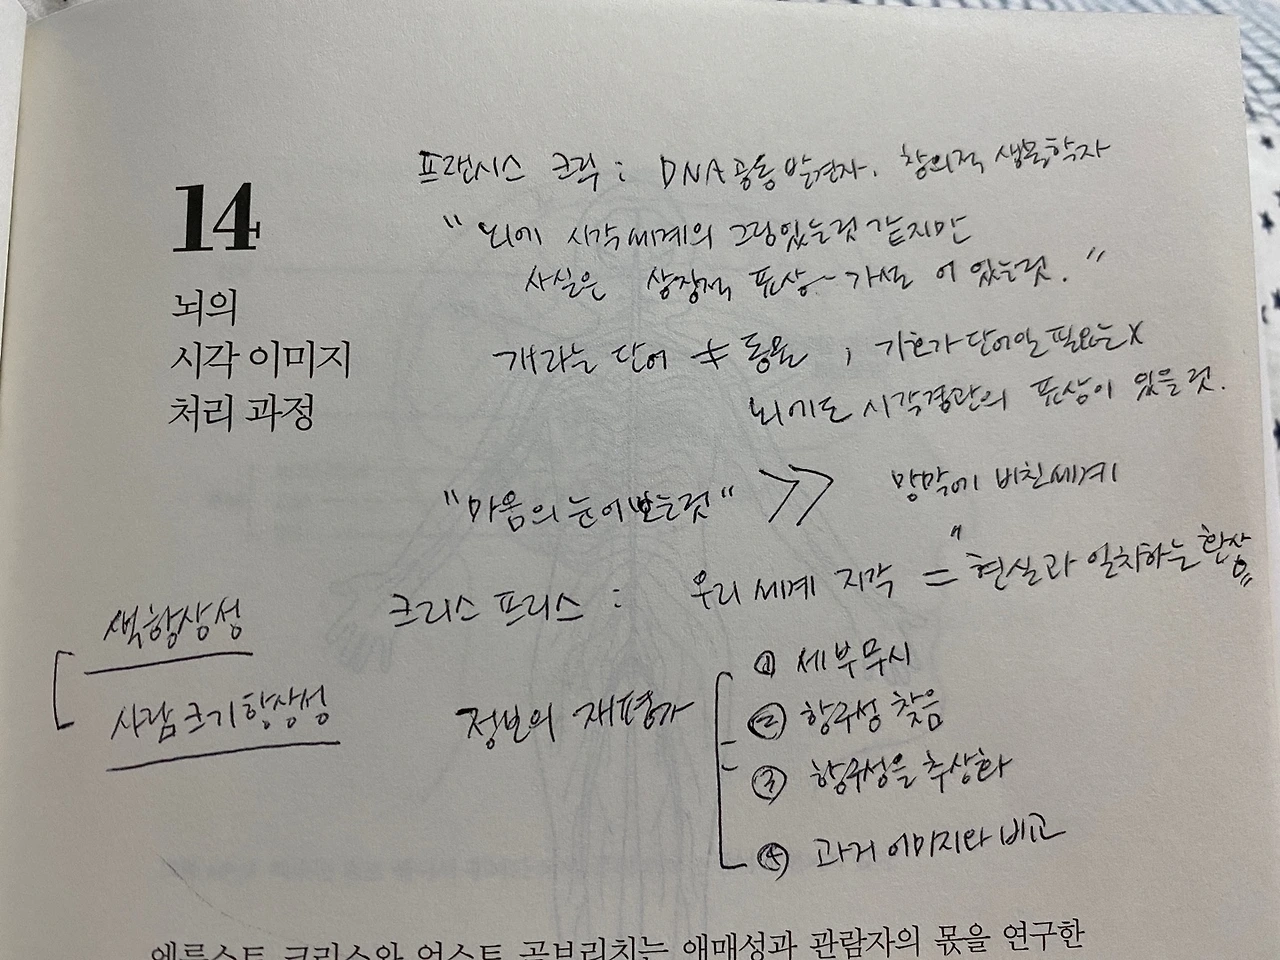 14
뇌의
시각 이미지
처리 과정
프랜시스 크릭 : DNA 공동 발견자. 창의적 생물학자
"뇌에 시각세계의 그림있는것 같지만
사실은 상징적 표상~가설 이 있는것."
개라는 단어 ≠ 동물 , 기호가 단어일 필요는 X
뇌에도 시각경관의 표상이 있을것.
"마음의 눈이 보는것" >> 망막에 비친세계
크리스 프리스 : 우리 세계 지각 = "현실과 일치하는 환상"
색항상성
사람크기항상성
정보의 재평가
① 세부무시
② 항구성 찾음
③ 항구성을 추상화
④ 과거 이미지와 비교
에른스트 크리스와 언스트 곰브리치는 애매성과 관람자의 몫을 연구한